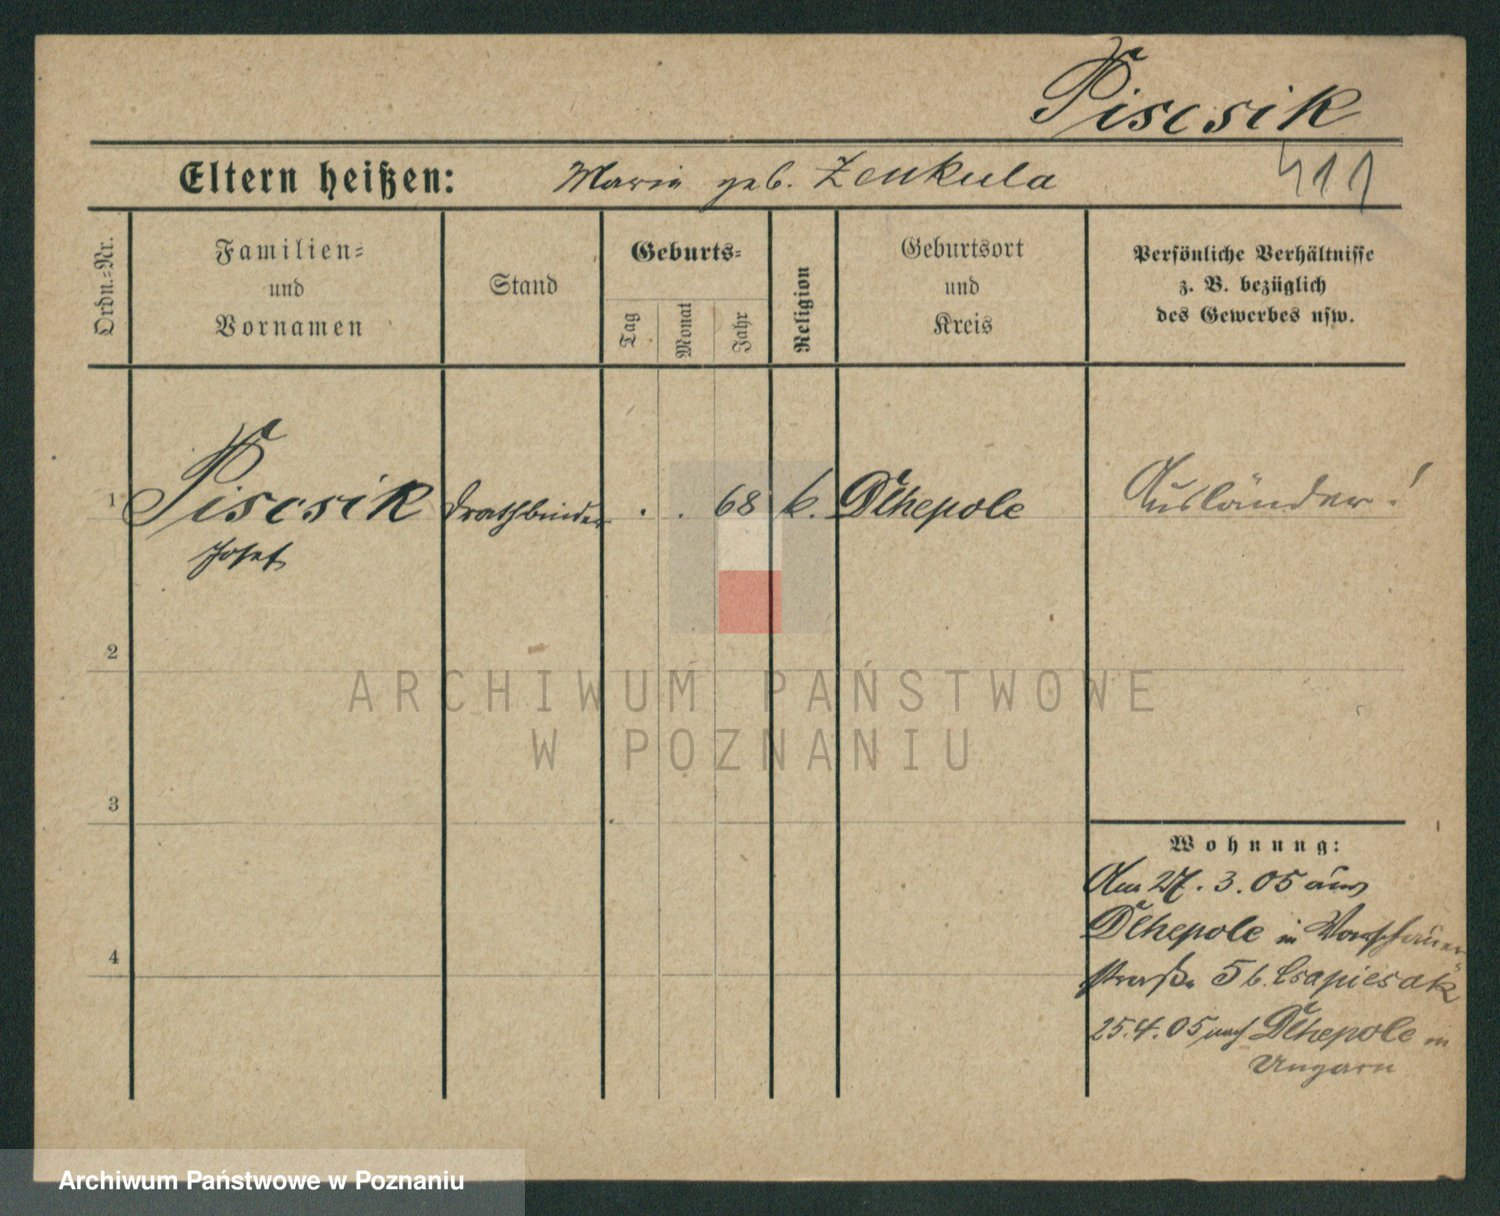 Piscsik
Eltern heißen: Maria geb. Zenkula
411
Ordn.=Nr.
Familien=
und
Vornamen
Stand
Geburts=
Tag
Monat
Jahr
Religion
Geburtsort
und
Kreis
Persönliche Verhältnisse
z. B. bezüglich
des Gewerbes usw.
1 Piscsik Drathbinder . . 68 k. Dlhepole Ausländer!
Josef
2
3
4
Wohnung:
Am 27.3.05 aus
Dlhepole in Warschauer
straße 5 b. Csapiesak
25.4.05 nach Dlhepole in
Ungarn
ARCHIWUM PAŃSTWOWE
W POZNANIU
Archiwum Państwowe w Poznaniu